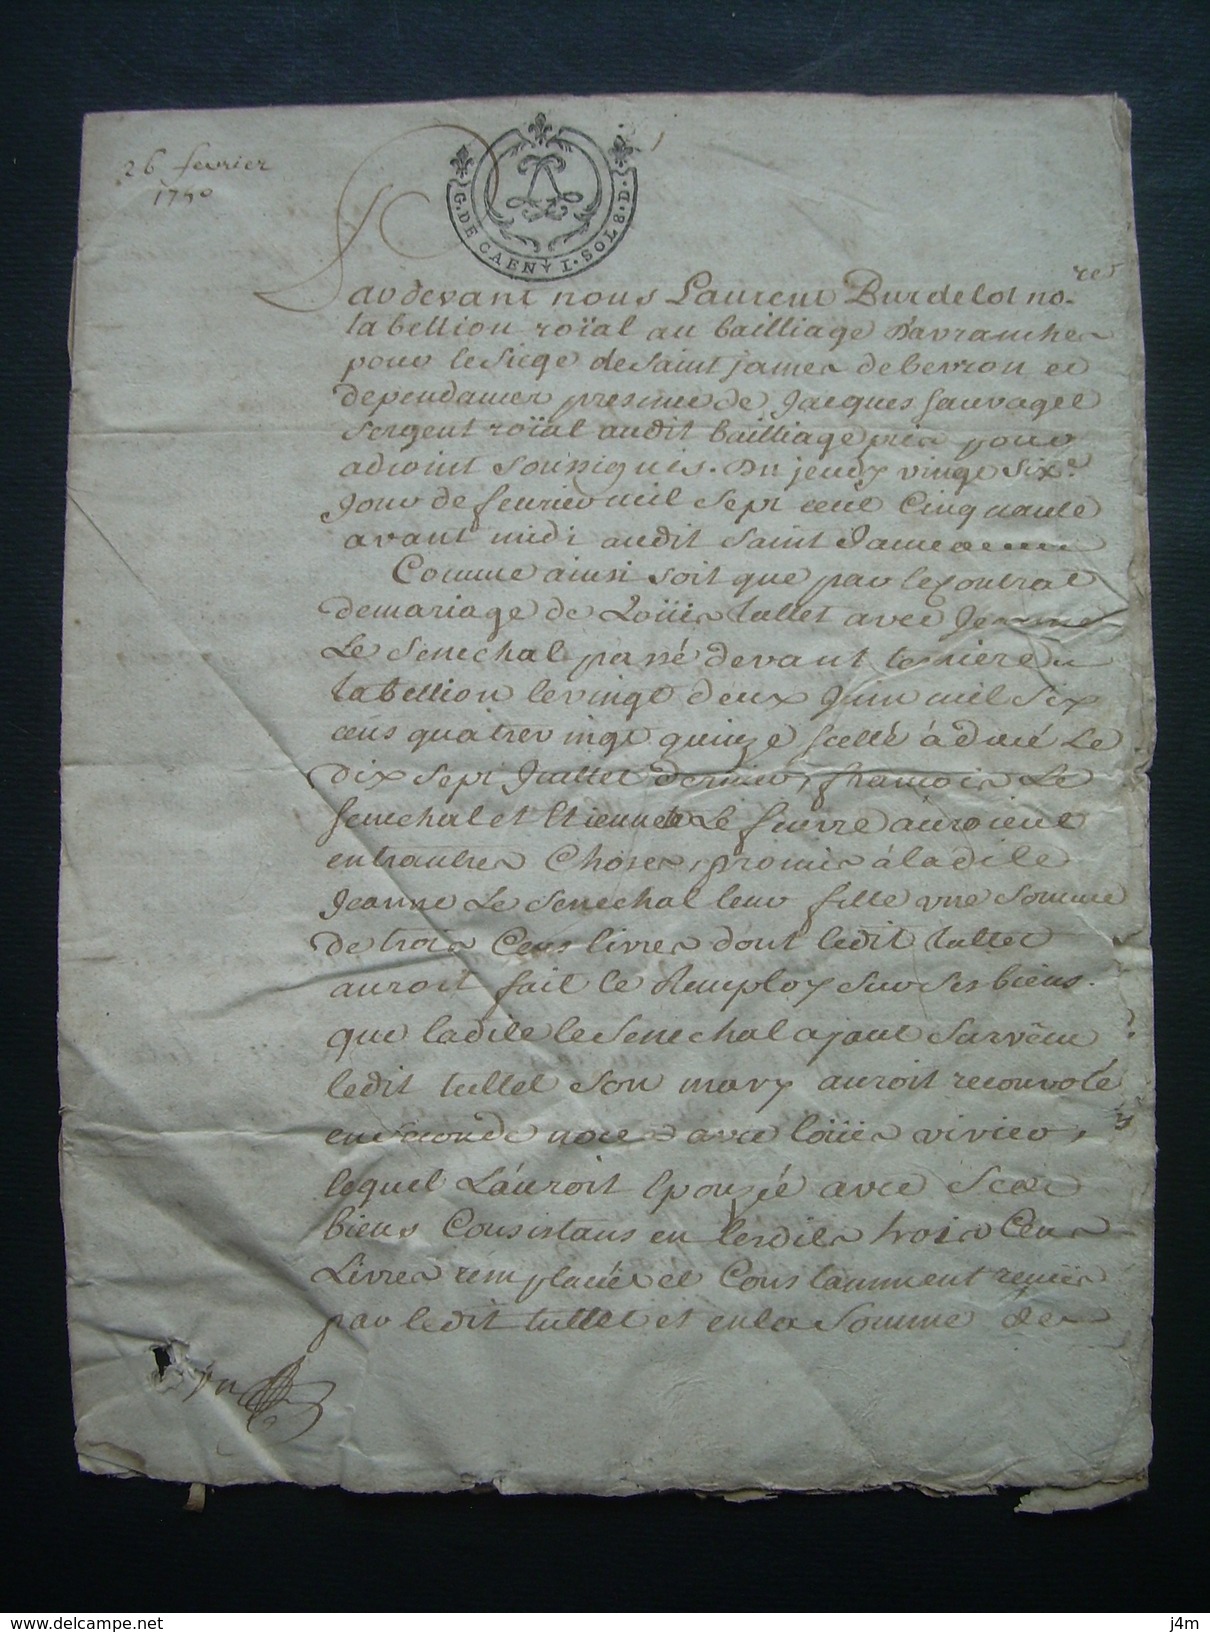 26 fevrier
1750
G. DE CAEN I. SOL 8. D.
Pardevant nous Laurent Burdelot no.res
tabellion roïal au bailliage Davranches
pour le siege de Saint James de bevron et
dependances presence de Jacques Sauvaget
Sergent roïal audit bailliage pris pour
adjoint soussignés. Du jeudy vingt six.e
Jour de fevrier mil sept cent Cinquante
avant midi audit Saint James
Comme ainsi soit que par le Contrat
de mariage de Loüis tullet avec Jeanne
Le Senechal passé devant
tabellion le vingt deux Juin mil Six
cens quatrevingt quinze scellé
dix sept Juillet dernier, francois Le
Senechal et Etiennete Le feuvre auroient
entrautres Choses, promis à ladite
Jeanne Le Senechal leur fille une Somme
de trois Cens livres dont ledit tullet
auroit fait le Remploy sur ses biens.
que ladite le Senechal ayant Survêcu
ledit tullet son mary auroit reconvolé
en seconde noces avec loüis vivier,
lequel Láuroit Epouzeé avec Ses
biens Consistans en lesdites trois Cens
Livres remplacées et Constamment
par ledit tullet et en la Somme de